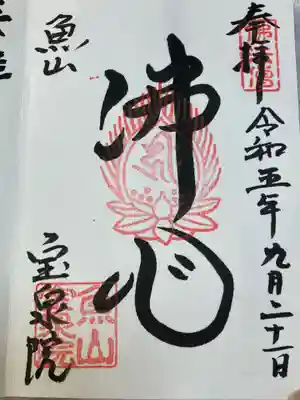 奉拝
令和五年九月二十一日
佛心
魚山
宝泉院